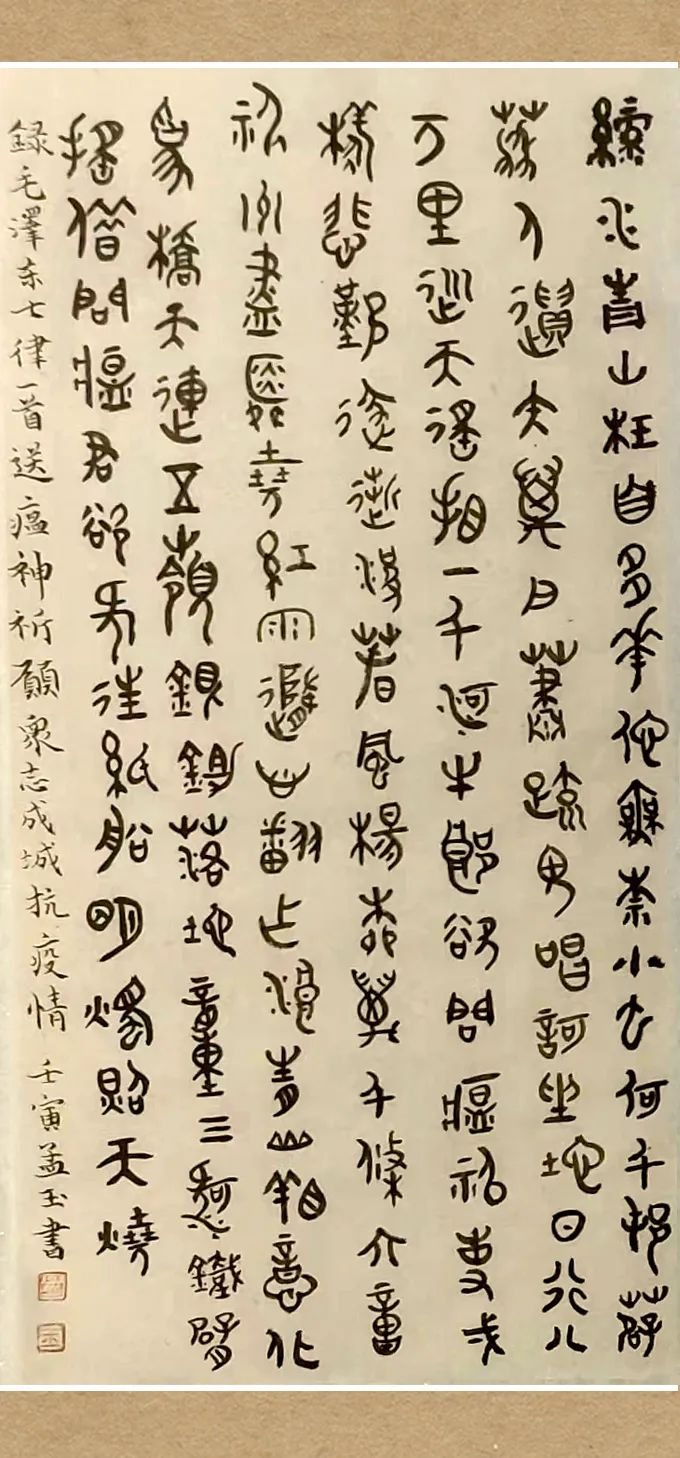 綠水青山枉自多華佗無奈小虫何千村薜
荔人遺矢萬戶蕭疏鬼唱歌坐地日行八
万里巡天遙看一千河牛郎欲問瘟神事弌
樣悲歡逐逝波春風楊柳萬千條六億
神州盡舜堯紅雨隨心翻作浪青山著意化
為橋天連五嶺銀鋤落地動三河鐵臂
搖借問瘟君欲何往紙船明燭照天燒
錄毛澤东七律一首送瘟神祈願衆志成城抗疫情 壬寅孟玉書